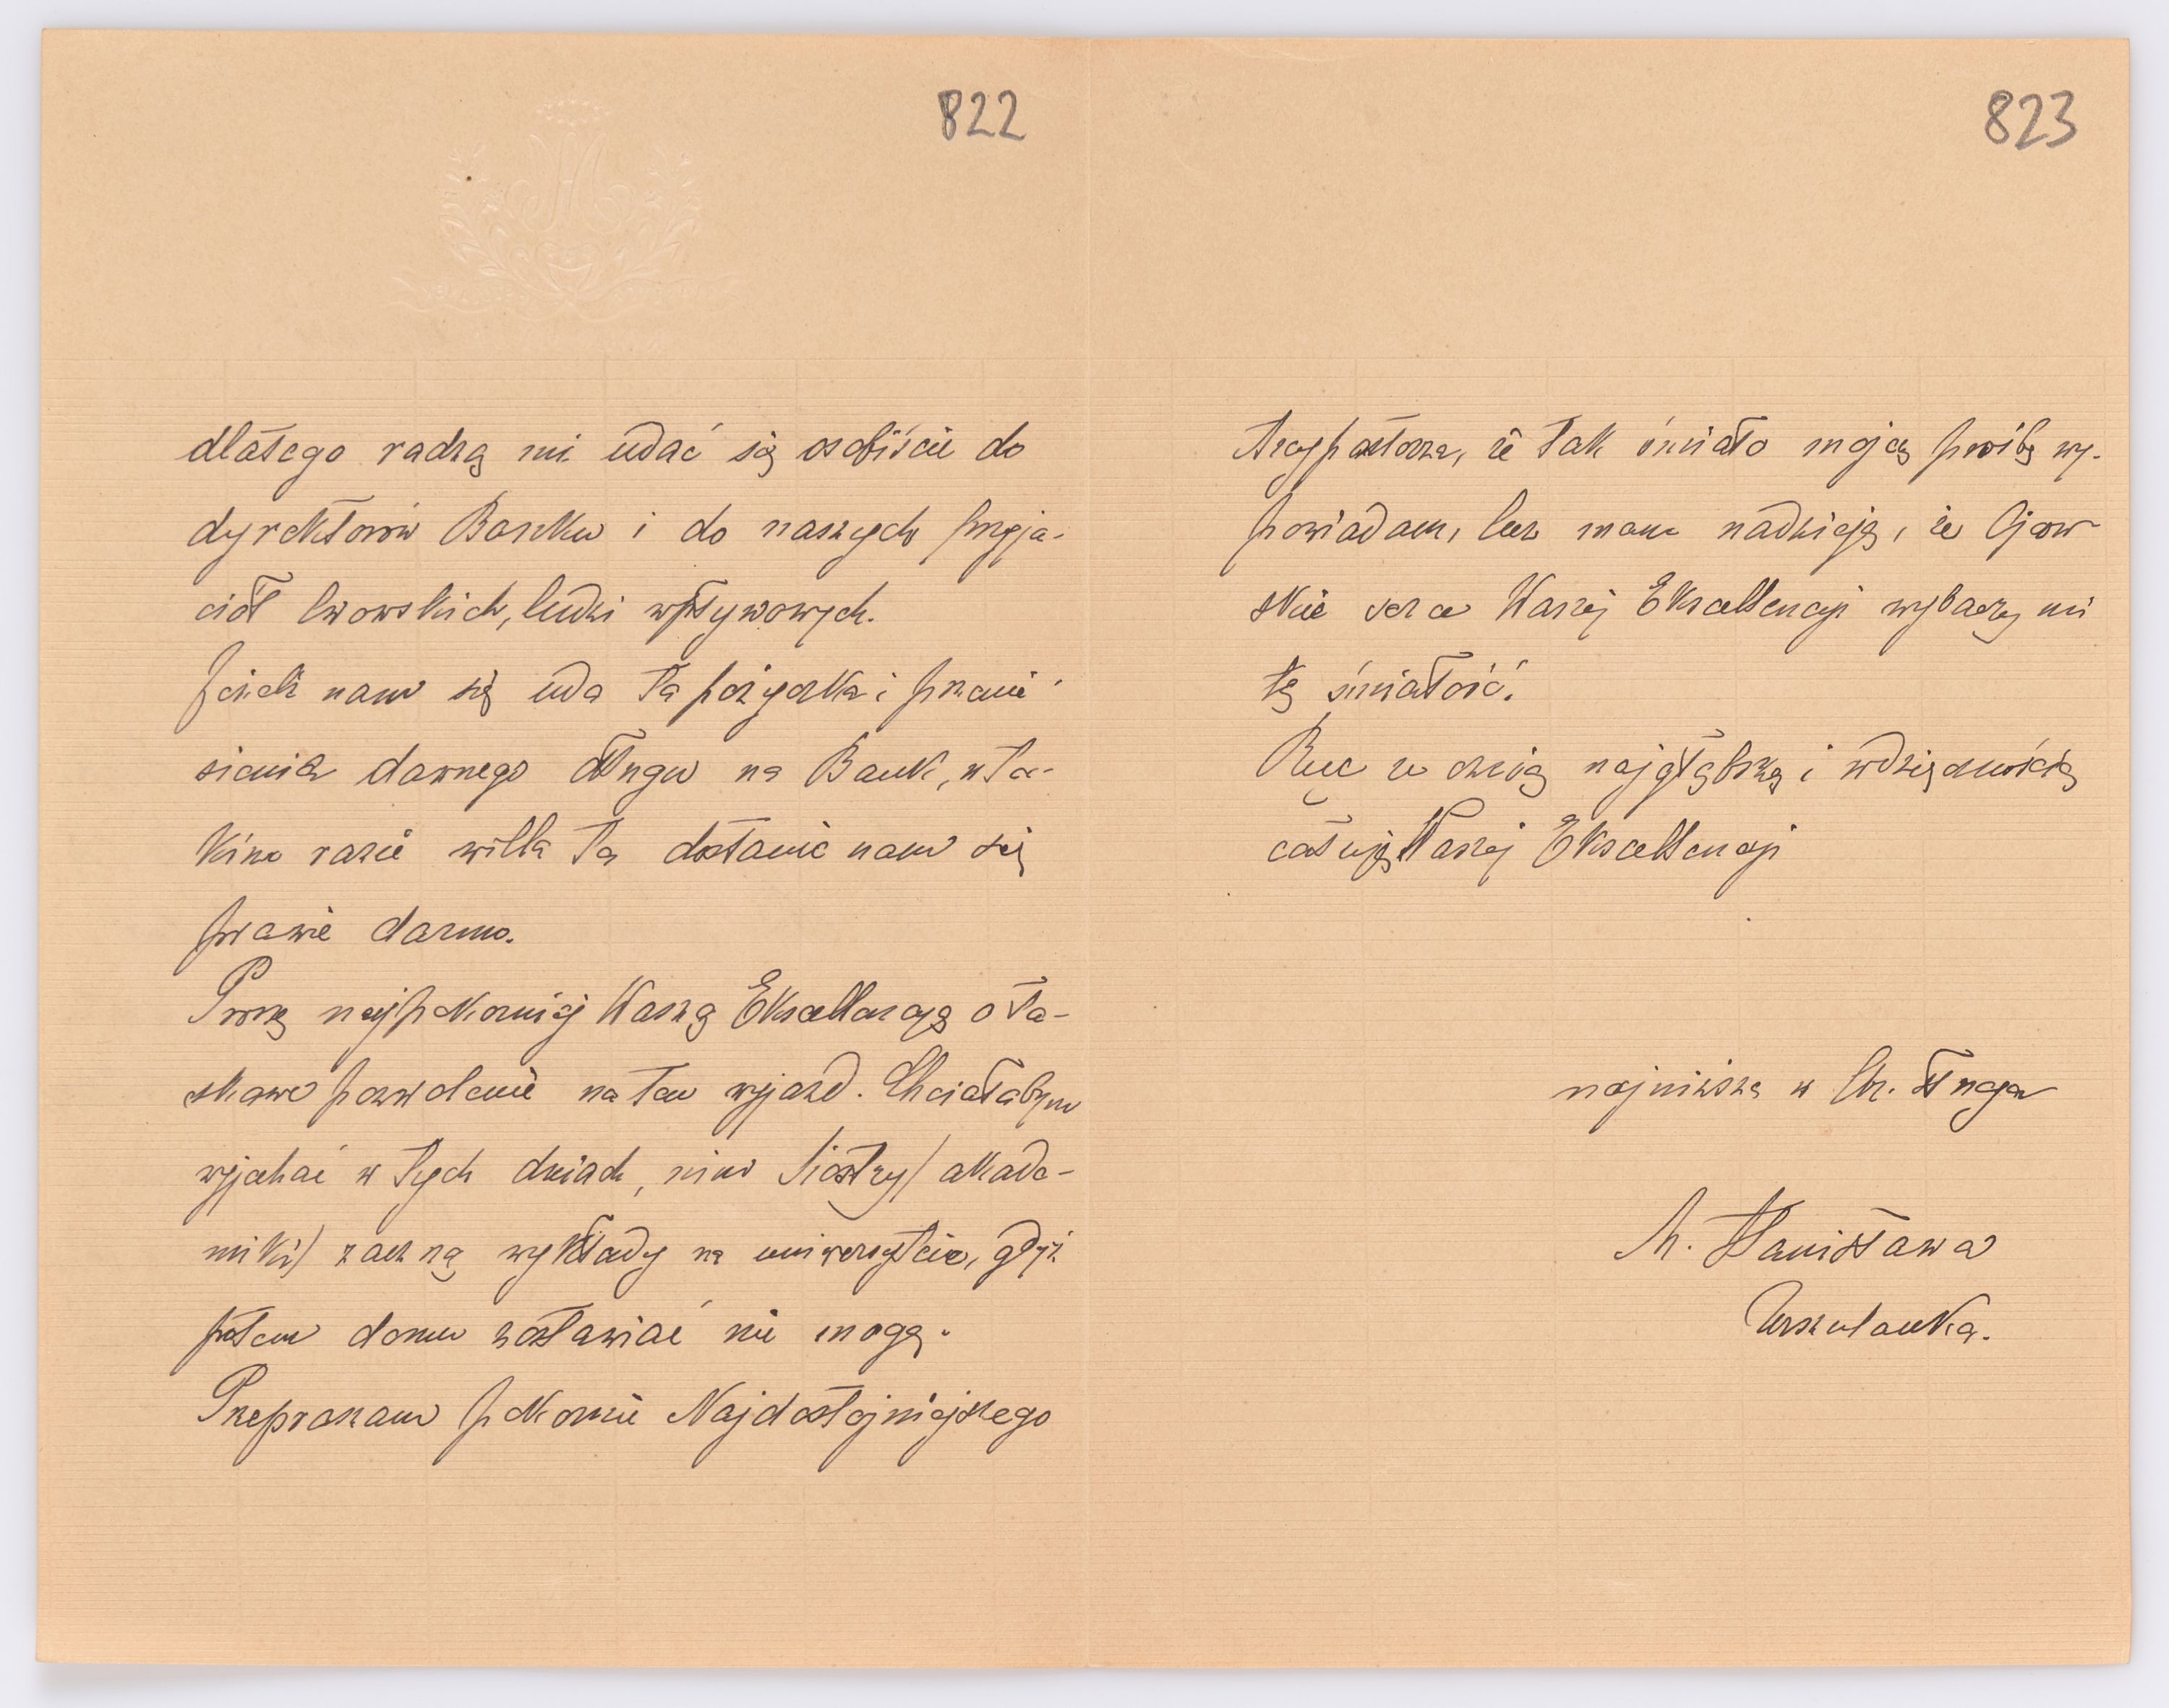 822
dlatego radzą mi udać się osobiście do
dyrektorów Banku i do naszych przyja-
ciół lwowskich, ludzi wpływowych.
Jeżeli nam się uda ta pożyczka i przenie-
sienie dawnego długu na Bank, w ta-
kim razie willa ta dostanie nam się
prawie darmo.
Proszę najpokorniej Waszą Ekscellencyę o ła-
skawe pozwolenie na ten wyjazd. Chciałabym
wyjechać w tych dniach, nim Siostry/akade-
miki/ zaczną wykłady na uniwersytecie, gdyż
potem domu zostawiać nie mogę.
Przepraszam pokornie Najdostojniejszego
823
Arcypasterza, że tak śmiało moją prośbę wy-
powiadam, lecz mam nadzieję, że Ojcow-
skie serce Waszej Ekscellencyi wybaczy mi
tę śmiałość.
Ręce ze czcią najgłębszą i wdzięcznością
całuję Waszej Ekscellencyi
najniższa w Chr. sługa
M. Stanisława
Urszulanka.